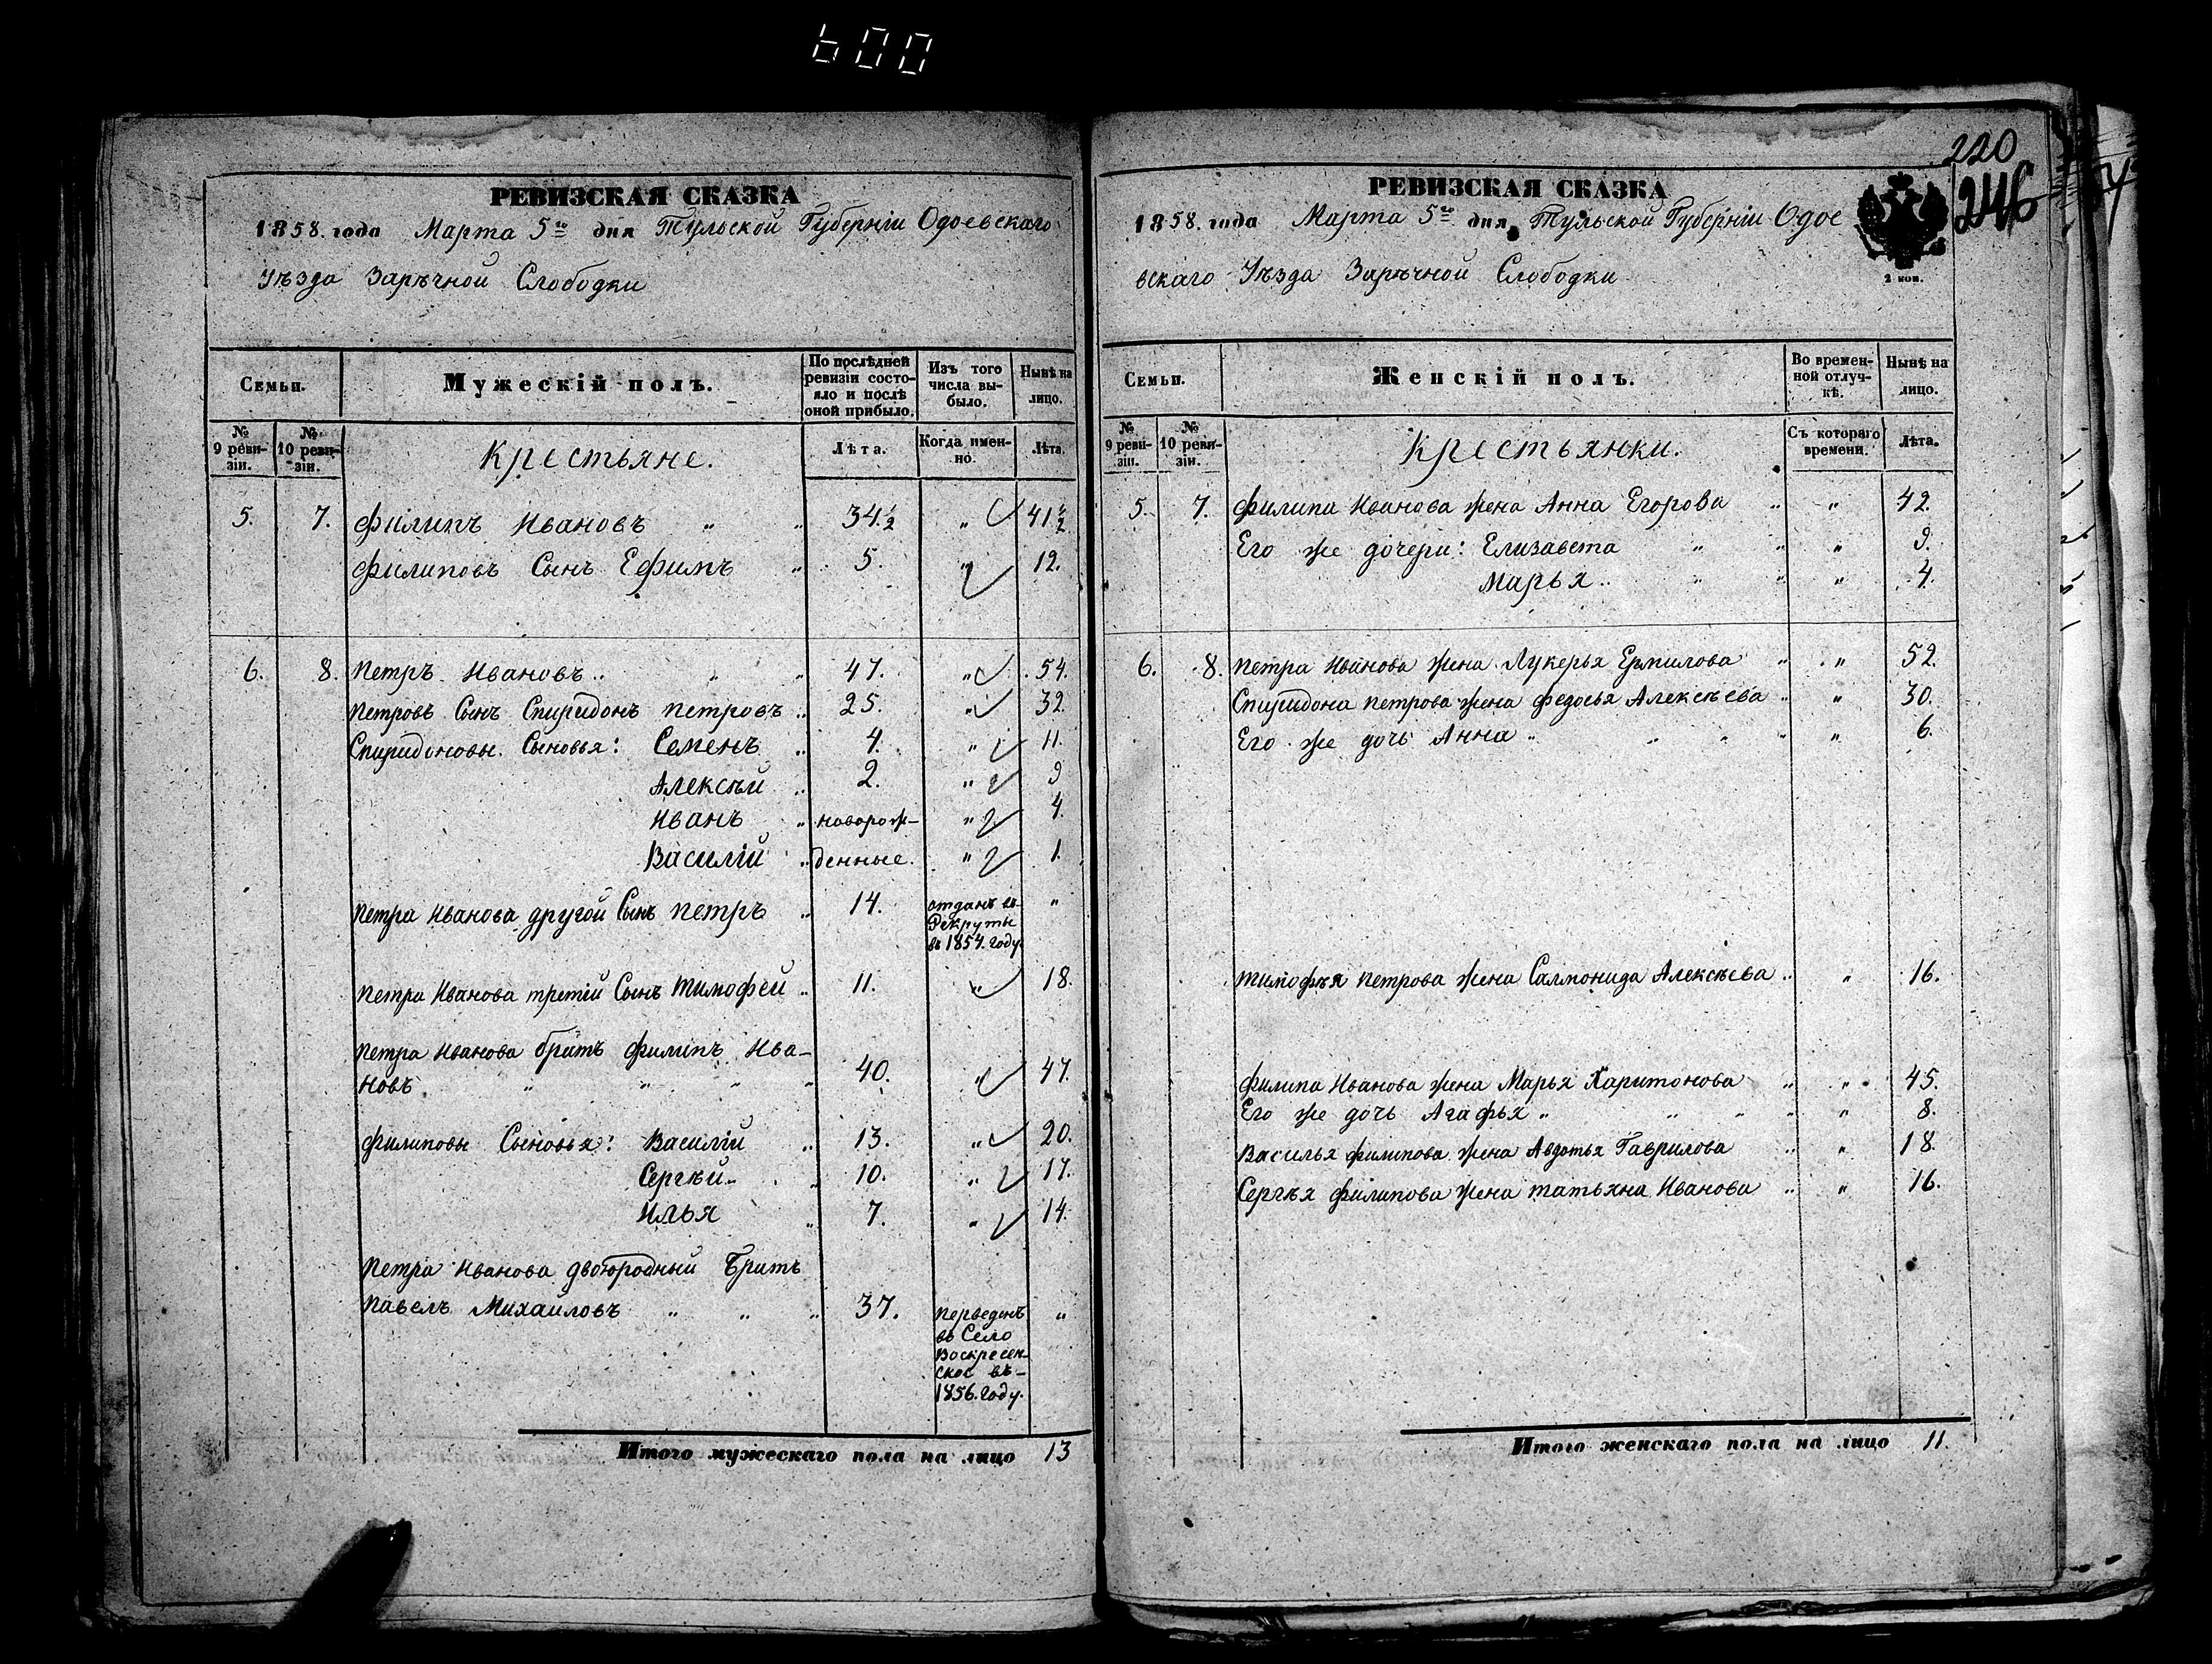 600
РЕВИЗСКАЯ СКАЗКА
1858. года Марта 5го дня Тульской Губерніи Одоевскаго
Уѣзда Зарѣчной Слободки
Семьи.
Мужескій полъ.
По послѣдней ревизіи состояло и послѣ оной прибыло.
Изъ того числа выбыло.
Нынѣ на лицо.
№ 9 ревизіи.
№ 10 ревизіи.
Крестьяне.
Лѣта.
Когда именно.
Лѣта.
5. 7. Филипъ Ивановъ " " 34.½ " 41½
Филиповъ Сынъ Ефимъ " 5. " 12.
6. 8. Петръ Ивановъ " " " 47. " 54.
Петровъ Сынъ Спиридонъ Петровъ " 25. " 32.
Спиридоновы Сыновья: Семенъ " 4. " 11.
Алексѣй " 2. " 9
Иванъ " новорож- " 4.
Василій " денные. " 1.
Петра Иванова другой Сынъ Петръ " 14. отданъ въ "
Рекруты
въ 1854. году.
Петра Иванова третій Сынъ Тимофей " 11. " 18.
Петра Иванова братъ Филипъ Ива-
новъ " " " " 40. " 47.
Филиповы Сыновья: Василій " 13. " 20.
Сергѣй " " 10. " 17.
Илья " 7. " 14.
Петра Иванова двоюродный Братъ
Павелъ Михайловъ " " " 37. перведенъ "
въ Село
Воскресен-
ское въ-
1856. году.
Итого мужескаго пола на лицо 13
220
246
РЕВИЗСКАЯ СКАЗКА
1858. года Марта 5го дня Тульской Губерніи Одое
вскаго Уѣзда Зарѣчной Слободки
2 коп.
Семьи.
Женскій полъ.
Во временной отлучкѣ.
Нынѣ на лицо.
№ 9 ревизіи.
№ 10 ревизіи.
Крестьянки.
Съ котораго времени.
Лѣта.
5. 7. Филипа Иванова жена Анна Егорова " " 42.
Его же дочери: Елизавета " " " 9.
Марья " " " " 4.
6. 8. Петра Иванова жена Лукерья Ермилова " " 52.
Спиридона Петрова жена Федосья Алексѣева " " 30.
Его же дочь Анна " " " " " 6.
Тимофѣя Петрова жена Салмонида Алексѣева " " 16.
Филипа Иванова жена Марья Харитонова " " 45.
Его же дочь Агафья " " " " " 8.
Василья Филипова жена Авдотья Гаврилова " " 18.
Сергѣя Филипова жена Татьяна Иванова " " 16.
Итого женскаго пола на лицо 11.